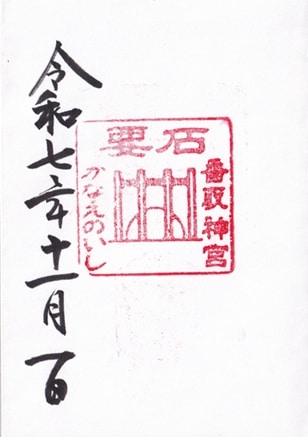 要石
香取神宮
かなめのいし
令和七年十一月一日